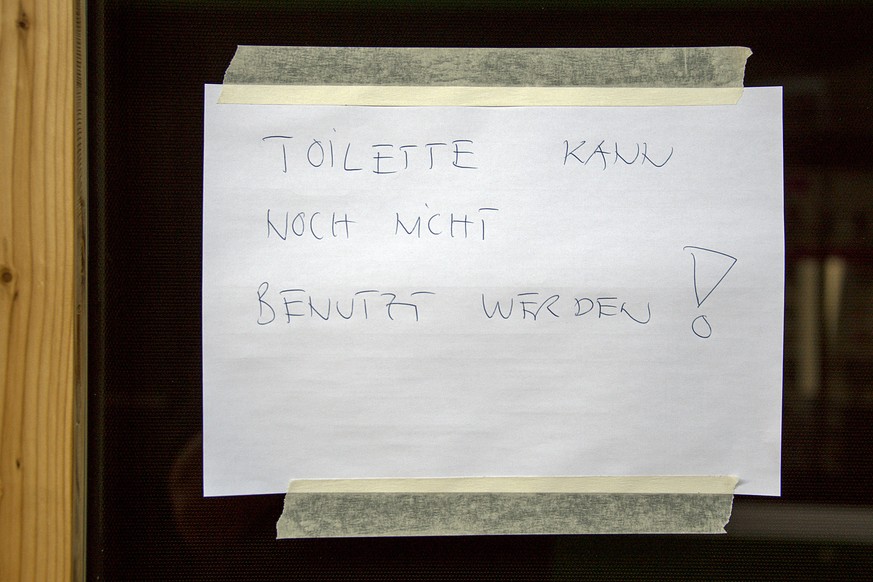 TOILETTE KANN
NOCH NICHT
BENUTZT WERDEN!